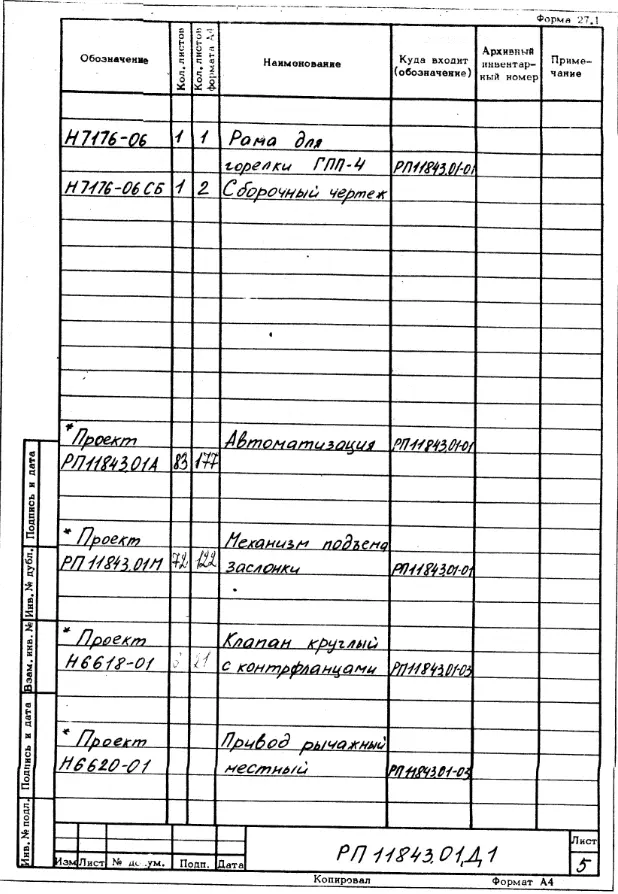 Форма 27.1
Обозначение Кол. листов Кол. листов формата А4 Наименование Куда входит (обозначение) Архивный инвентар-ный номер Приме-чание
Н7176-06 1 1 Рама для
горелки ГПП-4 РП11843.01-01
Н7176-06 СБ 1 2 Сборочный чертеж
* Проект Автоматизация РП11843.01-01
РП11843.01А 83 177
* Проект Механизм подъема
РП11843.01М 72 122 заслонки РП11843.01-01
* Проект Клапан круглый
Н6618-01 21 с контрфланцами РП11843.01-03
* Проект Привод рычажный
Н6620-01 местный РП11843.01-03
Инв. № подл. Подпись и дата Взам. инв. № Инв. № дубл. Подпись и дата
РП 11843.01Д1 Лист
5
Изм Лист № Подп. Дата
Копировал Формат А4